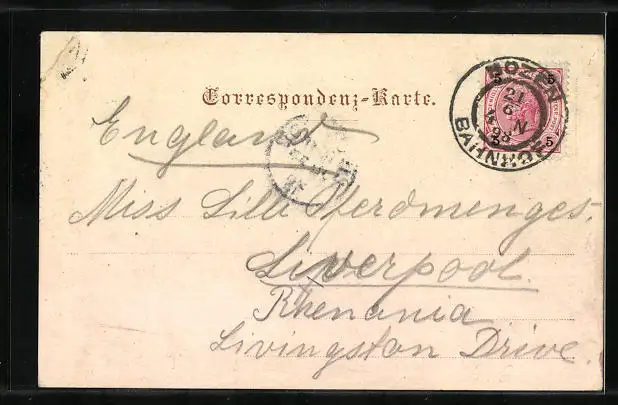 Correspondenz-Karte.
5 5
BOZEN
21
6
N
98
BAHNHOF
5
England
Miss Lilli Pferdmenges.
Liverpool.
Rhenania
Livingston Drive.